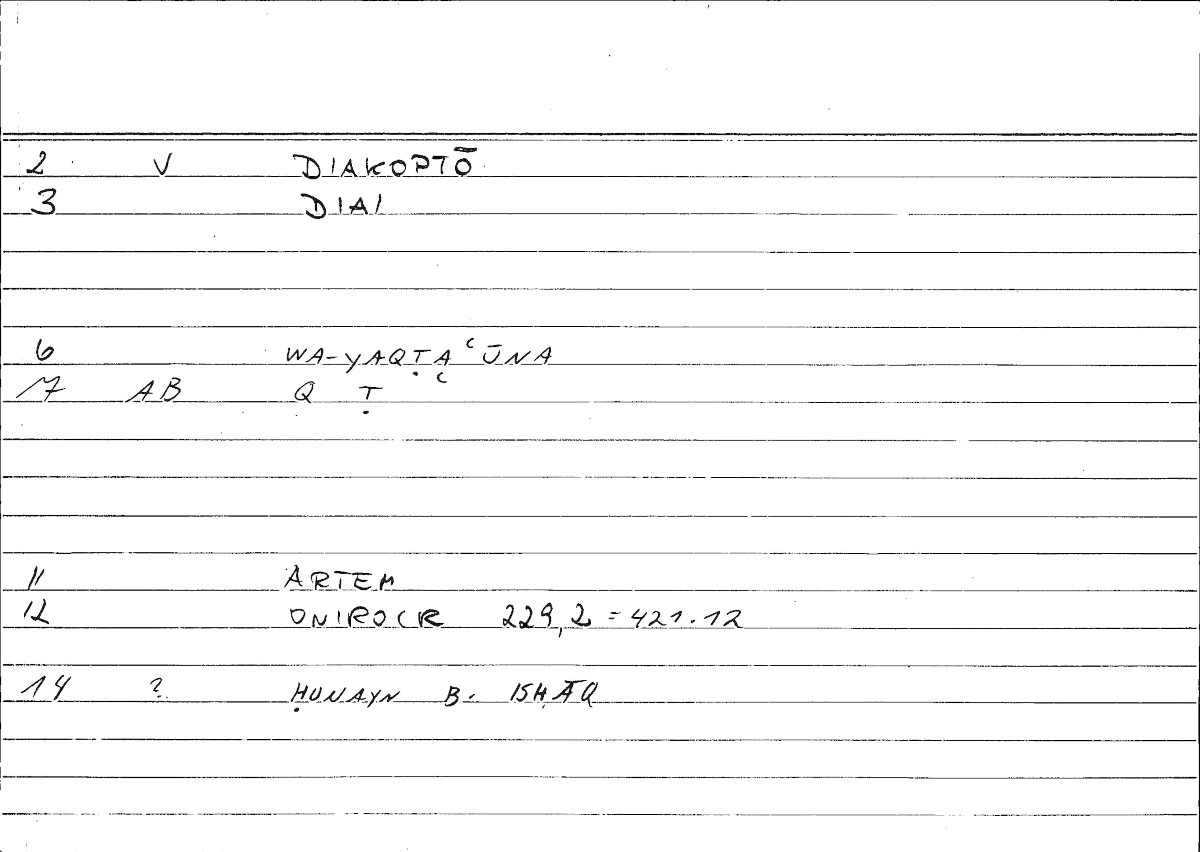 2 V DIAKOPTŌ
3 DIAI
6 WA-YAQṬAʿŪNA
7 AB Q Ṭ ʿ
11 ARTEM
12 ONIROCR 229,2 = 421.12
14 ? ḤUNAYN B. ISḤĀQ